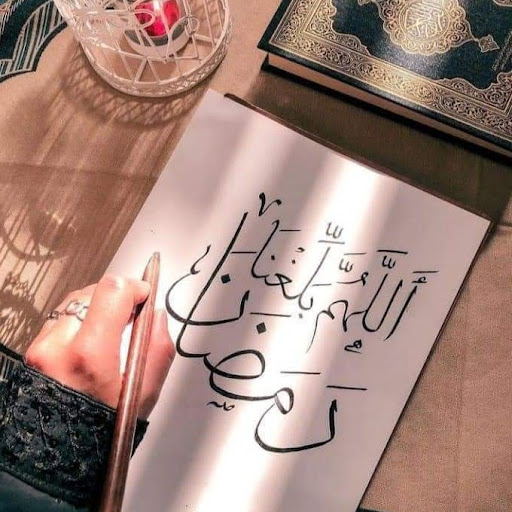 اَللّٰهُمَّ بَلِّغْنَا
رَمَضَان